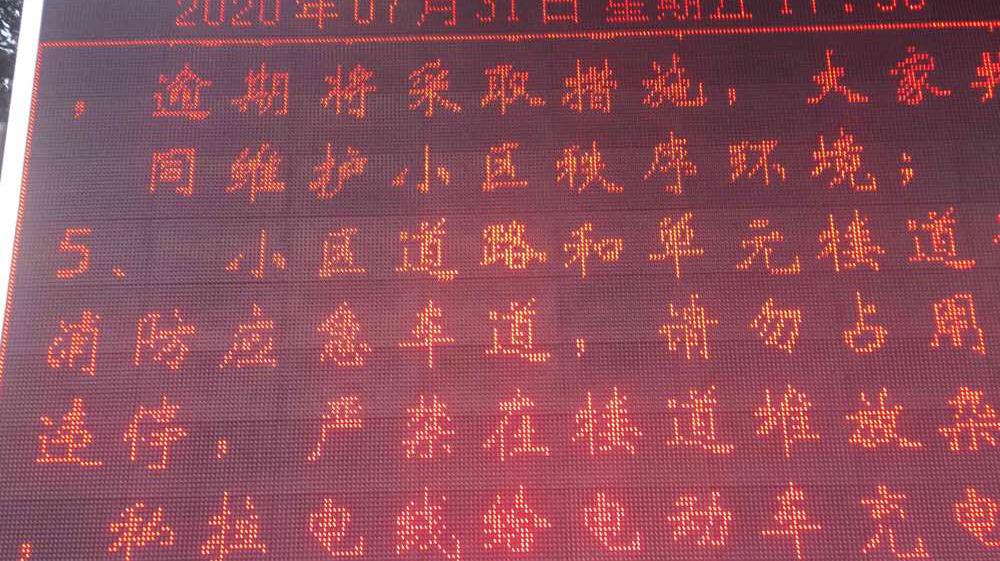 2020年07月31日 星期五 17:58
,逾期将采取措施,大家共
同维护小区秩序环境;
5、 小区道路和单元楼道
消防应急车道,请勿占用
违停,严禁在楼道堆放杂
,私拉电线给电动车充电